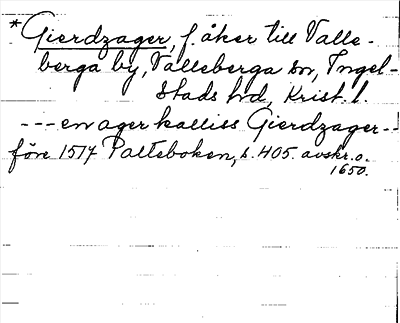 *Gierdzager, f. åker till Valle-
berga by, Valleberga sn, Ingel-
stads hd, Krist. l.
--- en ager kalliss Gierdzager --
före 1517 Palteboken, s. 405. avskr. o.
1650.